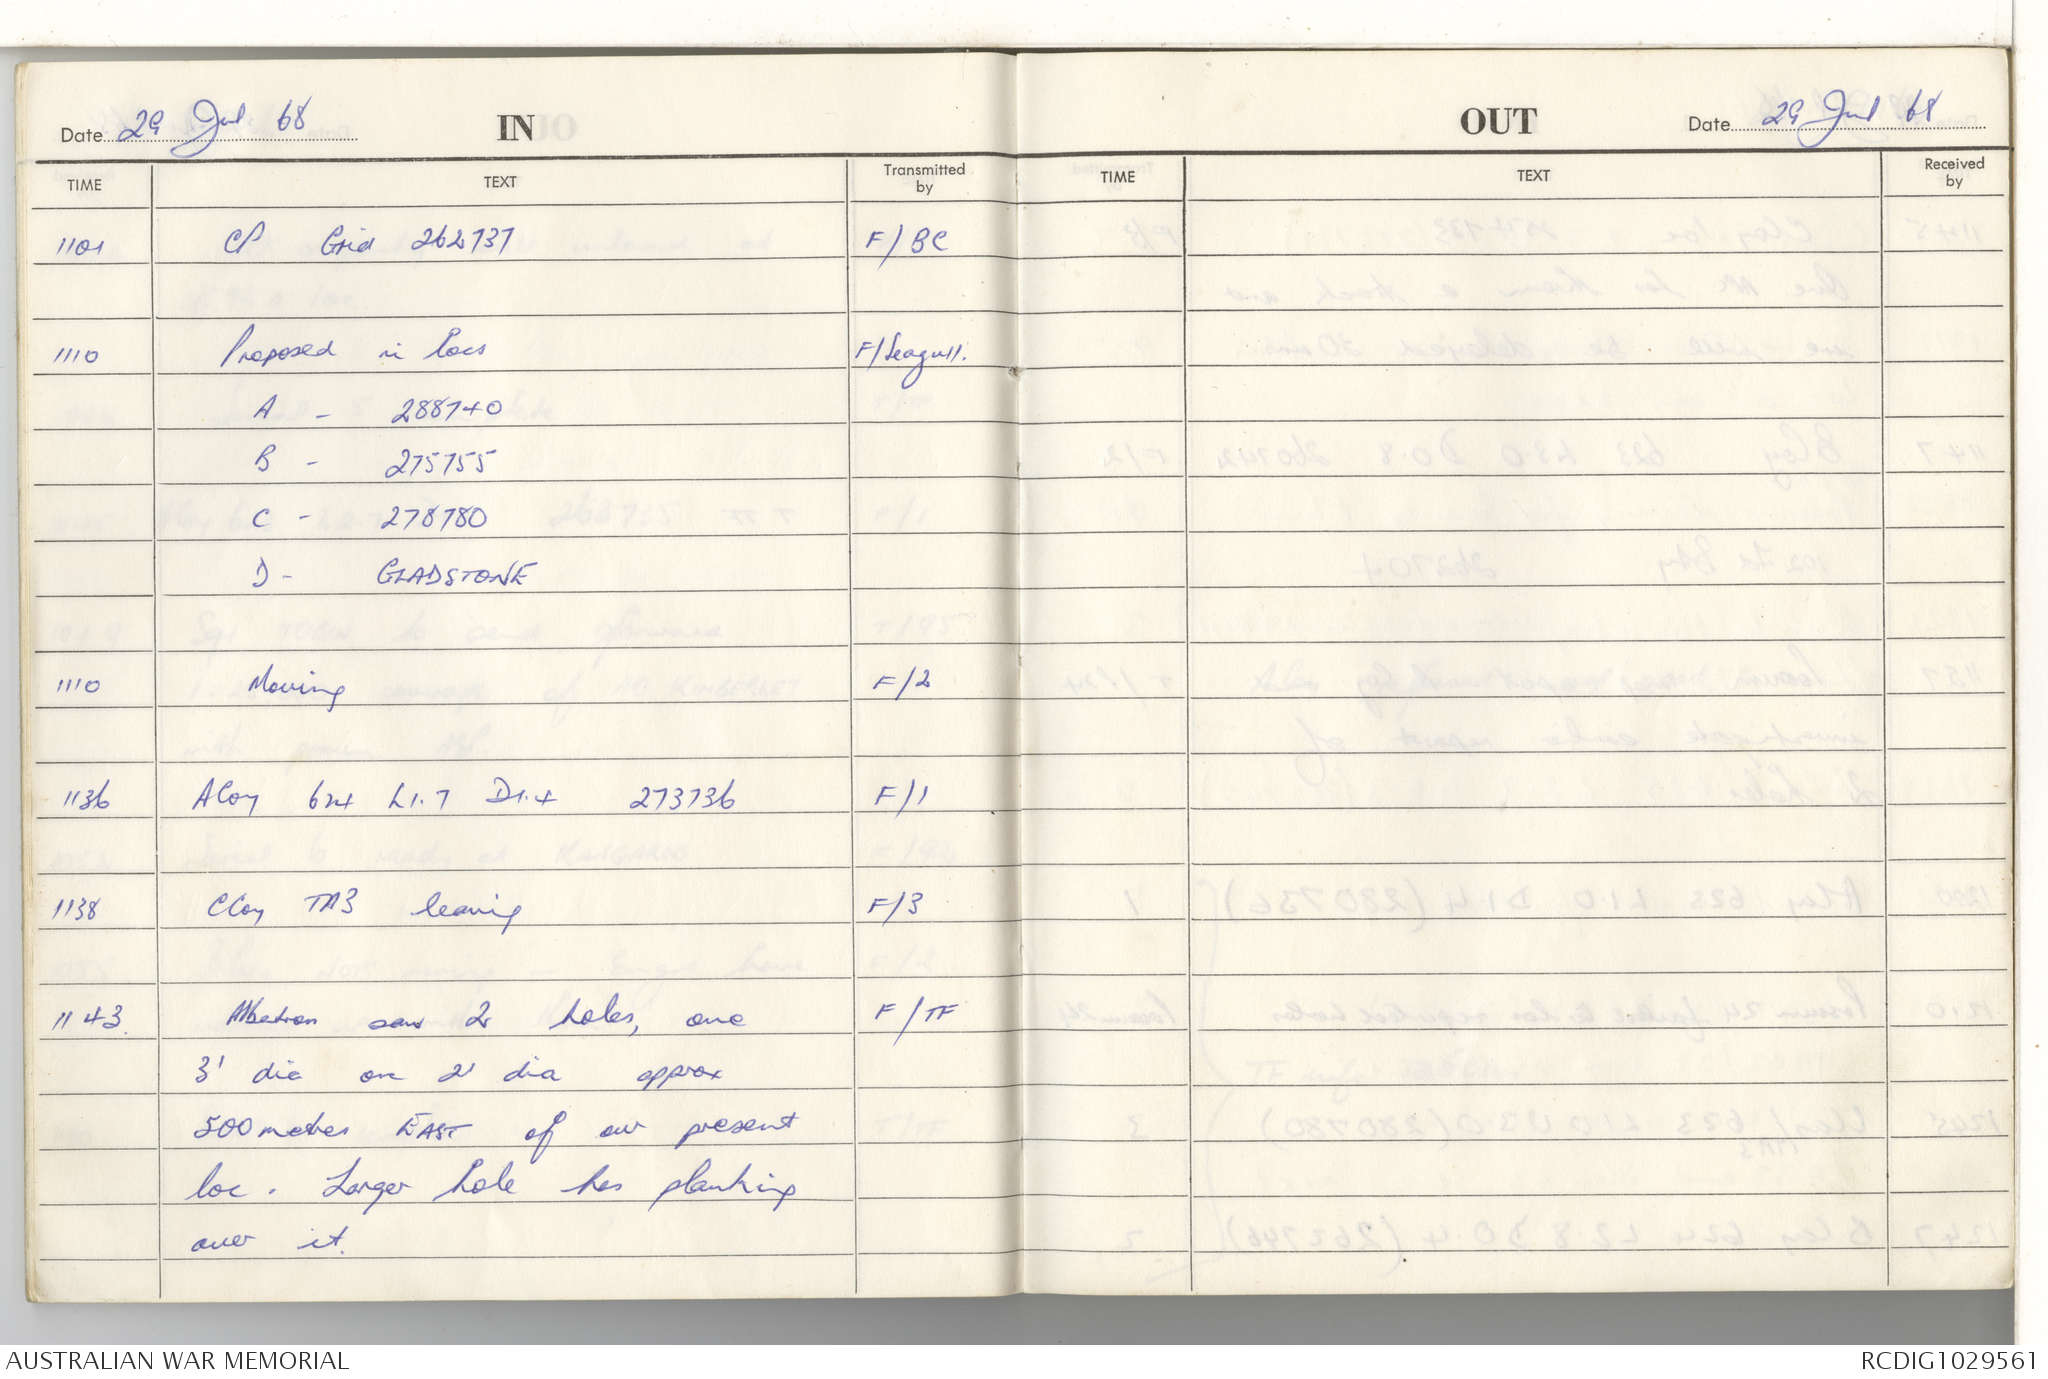 Date 29 Jul 68
IN
TIME TEXT Transmitted by
1101 CP Grid 262737 F/BC
1110 Proposed in locs F/Seagull.
A - 288740
B - 275755
C - 278780
D - GLADSTONE
1110 Moving F/2
1136 A Coy 624 L1.7 D1.4 273736 F/1
1138 C Coy TA3 leaving F/3
1143. saw 2 holes, one F/TF
3' dia one 2' dia approx
500 metres EAST of our present
loc. Larger hole has planking
over it.
OUT
Date 29 Jul 68
TIME TEXT Received by
AUSTRALIAN WAR MEMORIAL
RCDIG1029561